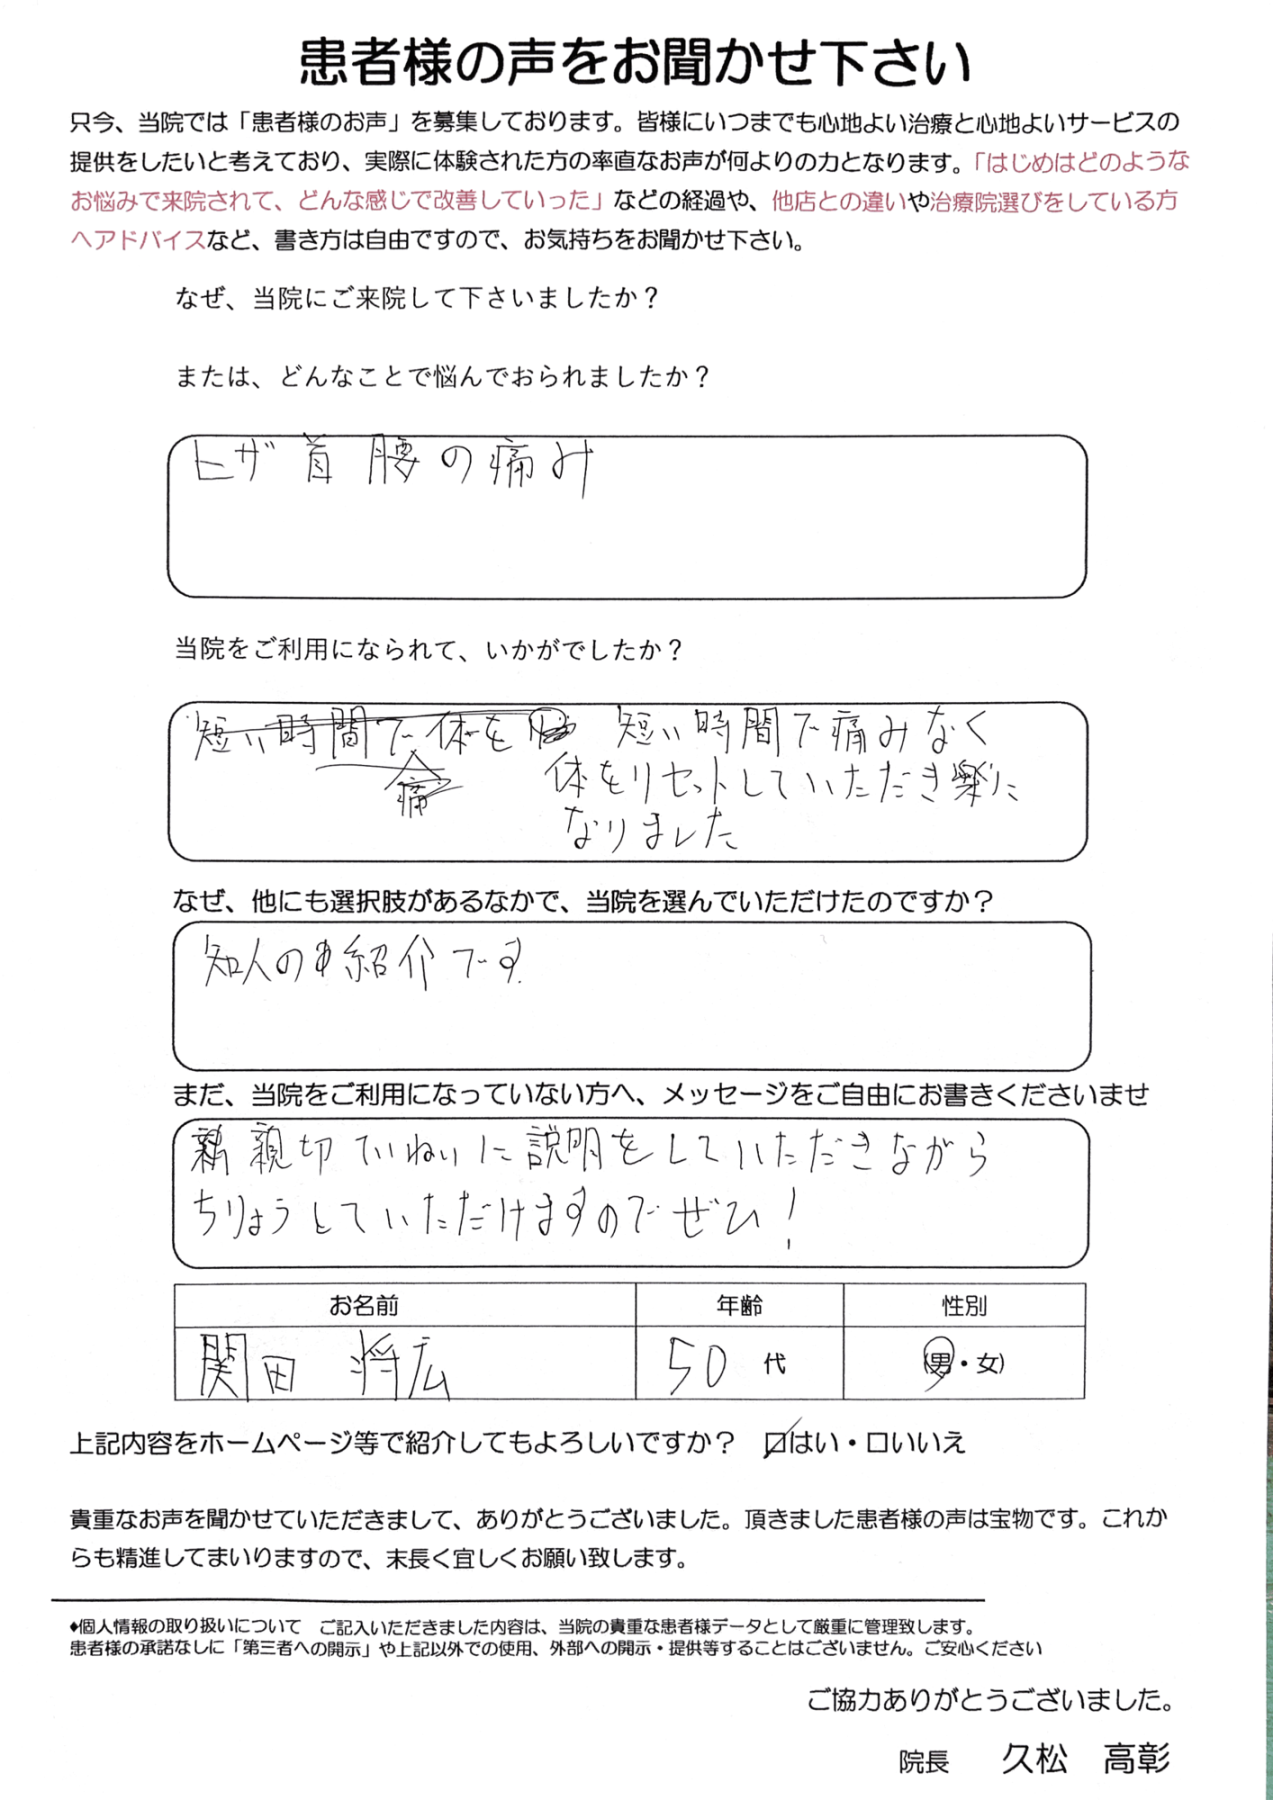 患者様の声をお聞かせ下さい
只今、当院では「患者様のお声」を募集しております。皆様にいつまでも心地よい治療と心地よいサービスの
提供をしたいと考えており、実際に体験された方の率直なお声が何よりの力となります。「はじめはどのような
お悩みで来院されて、どんな感じで改善していった」などの経過や、他店との違いや治療院選びをしている方
へアドバイスなど、書き方は自由ですので、お気持ちをお聞かせ下さい。
なぜ、当院にご来院して下さいましたか？
または、どんなことで悩んでおられましたか？
ヒザ 首 腰の痛み
当院をご利用になられて、いかがでしたか？
短い時間で体を 短い時間で痛みなく
痛
体をリセットしていただき楽に
なりました
なぜ、他にも選択肢があるなかで、当院を選んでいただけたのですか？
知人の紹介です
まだ、当院をご利用になっていない方へ、メッセージをご自由にお書きくださいませ
親切ていねいに説明をしていただきながら
ちりょうしていただけますのでぜひ！
お名前 年齢 性別
関田 将広 50 代 (男・女)
上記内容をホームページ等で紹介してもよろしいですか？ ☑はい・□いいえ
貴重なお声を聞かせていただきまして、ありがとうございました。頂きました患者様の声は宝物です。これか
らも精進してまいりますので、末長く宜しくお願い致します。
◆個人情報の取り扱いについて ご記入いただきました内容は、当院の貴重な患者様データとして厳重に管理致します。
患者様の承諾なしに「第三者への開示」や上記以外での使用、外部への開示・提供等することはございません。ご安心ください
ご協力ありがとうございました。
院長 久松 高彰